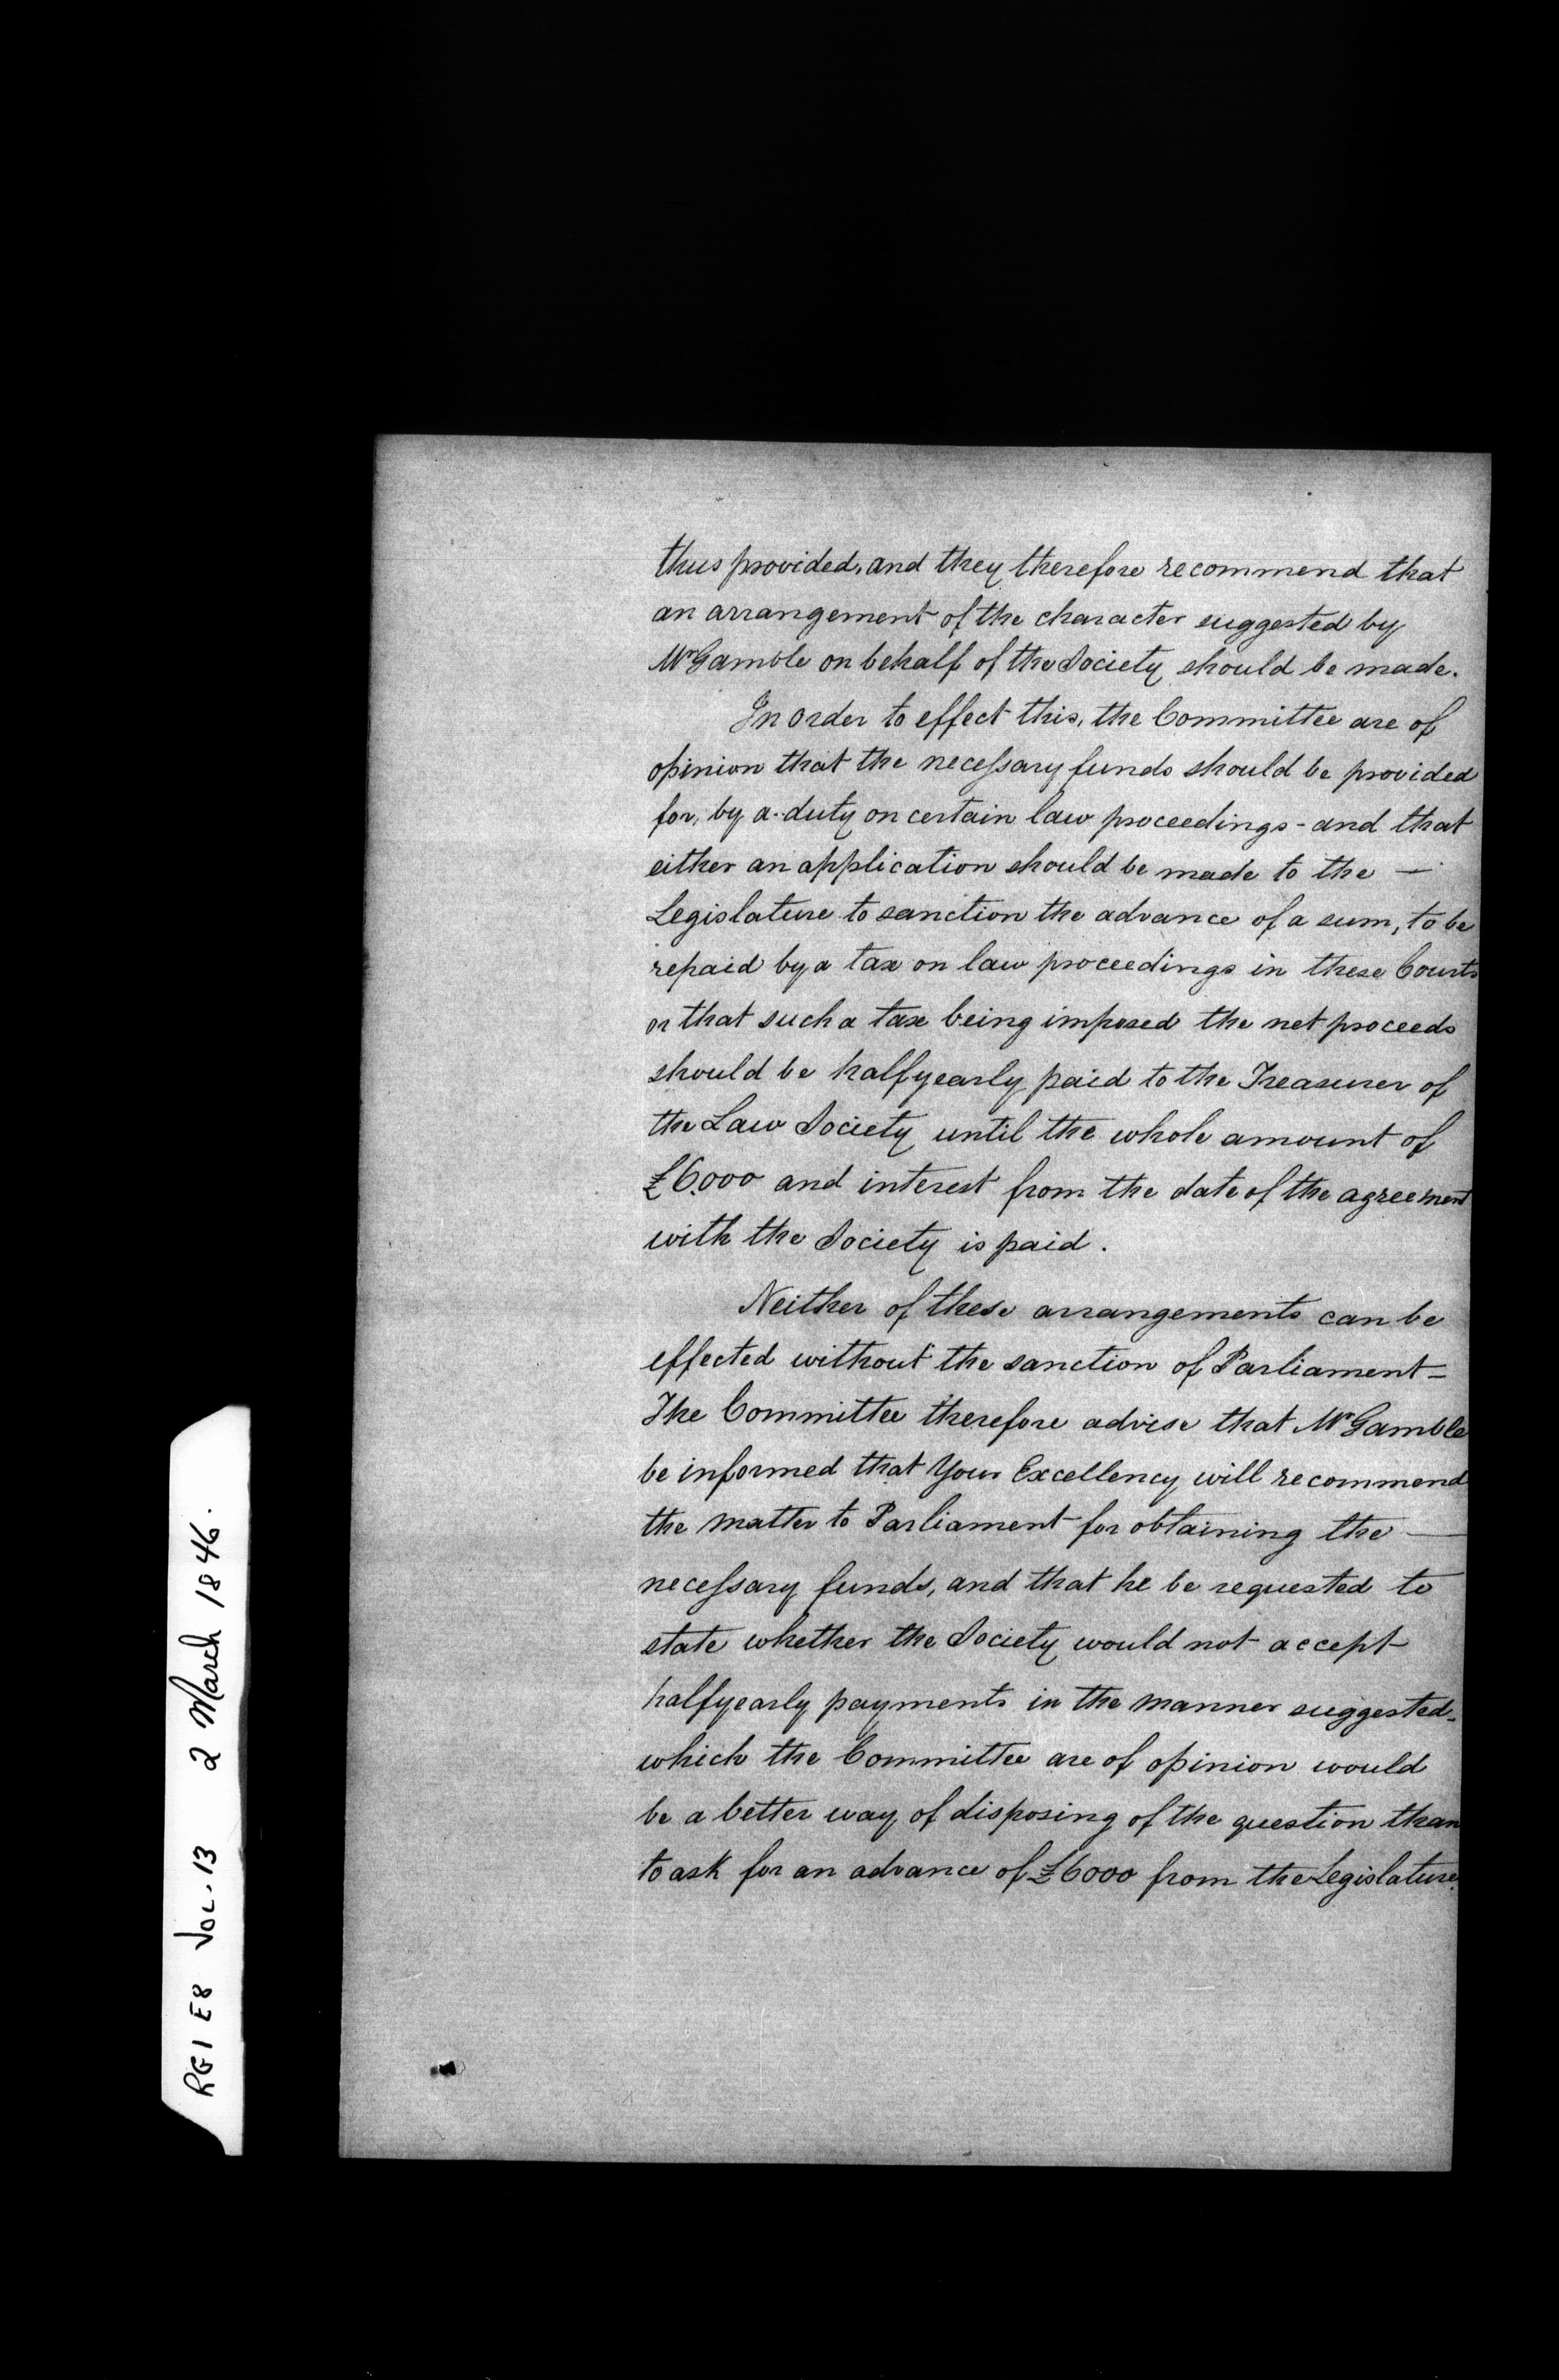 thus provided, and they therefore recommend that
an arrangement of the character suggested by
Mr Gamble on behalf of the Society should be made.
In order to effect this, the Committee are of
opinion that the necessary funds should be provided
for, by a duty on certain law proceedings - and that
either an application should be made to the —
Legislature to sanction the advance of a sum, to be
repaid by a tax on law proceedings in these Courts
or that such a tax being imposed the net proceeds
should be halfyearly paid to the Treasurer of
the Law Society until the whole amount of
£6,000 and interest from the date of the agreement
with the Society is paid.
Neither of these arrangements can be
effected without the sanction of Parliament -
The Committee therefore advise that Mr Gamble
be informed that Your Excellency will recommend
the matter to Parliament for obtaining the —
necessary funds, and that he be requested to
state whether the Society would not accept
halfyearly payments in the manner suggested -
which the Committee are of opinion would
be a better way of disposing of the question than
to ask for an advance of £6000 from the Legislature.
RG 1 E8 VOL. 13 2 March 1846.